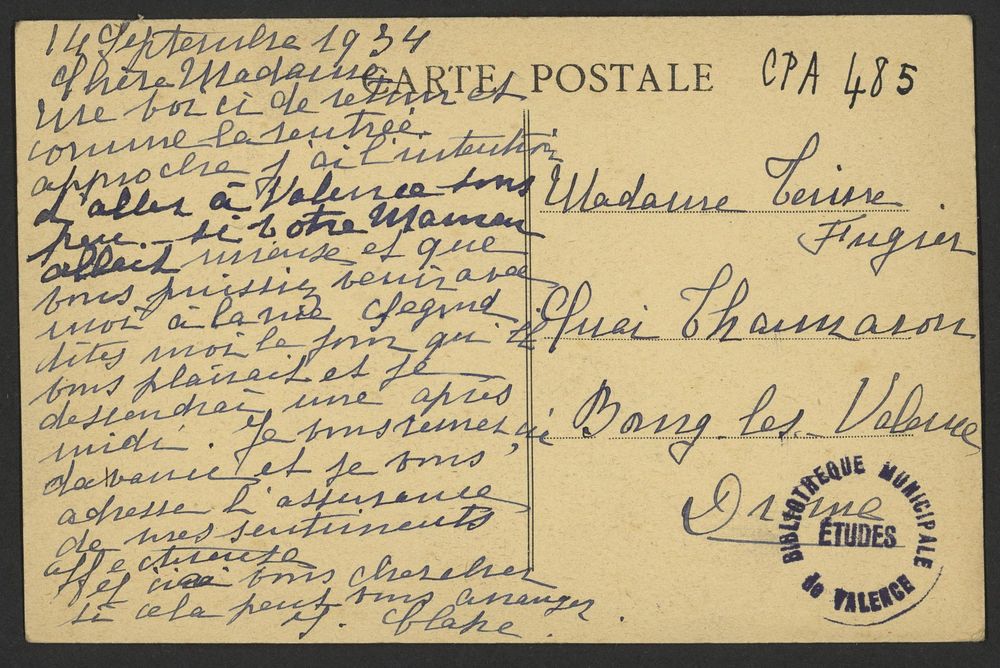 14 Septembre 1934
Chère Madame
Me voici de retour et
comme la rentrée
approche j'ai l'intention
d'aller à Valence sous
peu. – si votre Maman
allait mieuse et que
vous puissiez venir avec
moi à la rue
dites moi le jour qui
vous plairait et je
dessendrai une après
midi. Je vous remercie
davance et je vous
adresse l'assurance
de mes sentiments
affectueuse
et irai vous chercher
si cela peut vous arranger.
CARTE POSTALE
CPA 485
Madame
Fugier
Quai Thannaron
Bourg les Valence
Drôme
BIBLIOTHEQUE MUNICIPALE
ÉTUDES
de VALENCE